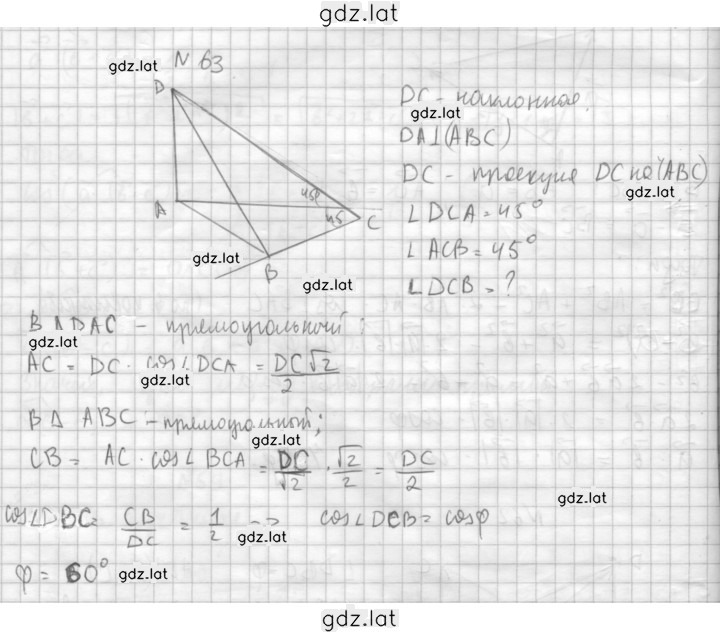 gdz.lat
N 63
gdz.lat
D
A
B
C
45°
45
DC - наклонная.
gdz.lat
DA⊥(ABC)
DC - проекция DC на (ABC)
gdz.lat
∠DCA = 45°
∠ACB = 45°
∠DCB = ?
gdz.lat
gdz.lat
В ΔDAC - прямоугольный:
gdz.lat
AC = DC · cos∠DCA = DC√2/2
gdz.lat
В Δ ABC - прямоугольный;
gdz.lat
CB = AC · cos∠BCA = DC/√2 · √2/2 = DC/2
gdz.lat
cos∠DBC = CB/DC = 1/2 => cos∠DCB = cosφ
gdz.lat
φ = 60°
gdz.lat
gdz.lat